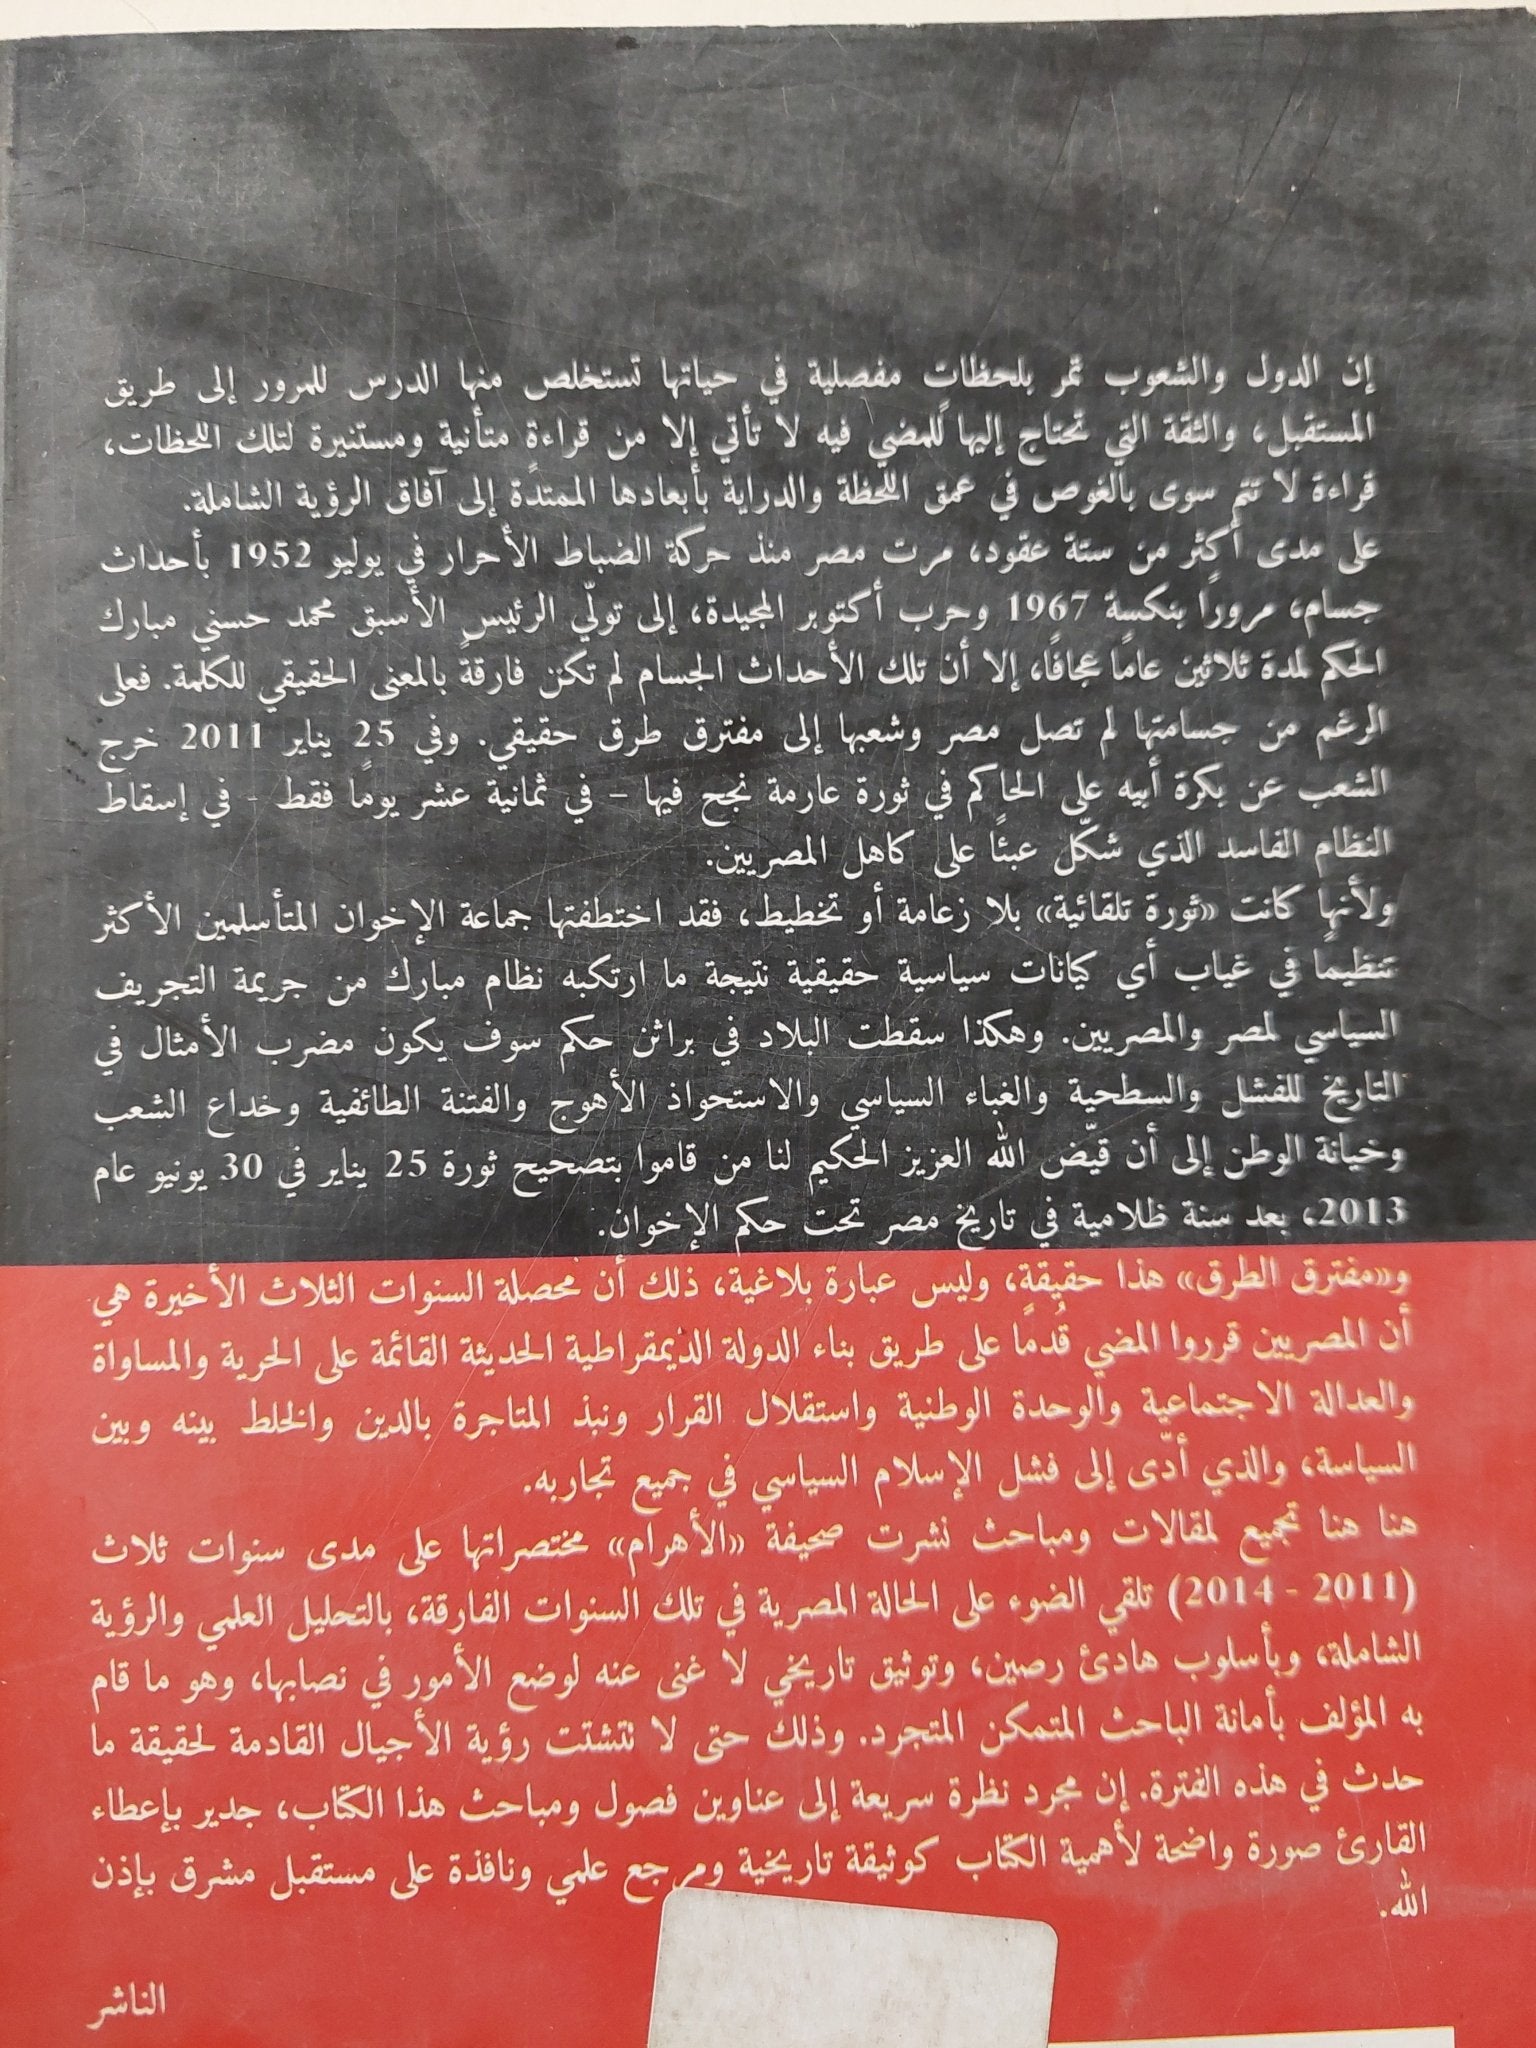 إن الدول والشعوب تمر بلحظاتٍ مفصلية في حياتها تستخلص منها الدرس للمرور إلى طريق
المستقبل، والثقة التي تحتاج إليها للمضي فيه لا تأتي إلا من قراءةٍ متأنية ومستنيرة لتلك اللحظات،
قراءة لا تتم سوى بالغوص في عمق اللحظة والدراية بأبعادها الممتدة إلى آفاق الرؤية الشاملة.
على مدى أكثر من ستة عقود، مرت مصر منذ حركة الضباط الأحرار في يوليو 1952 بأحداث
جسام، مرورًا بنكسة 1967 وحرب أكتوبر المجيدة، إلى تولّي الرئيس الأسبق محمد حسني مبارك
الحكم لمدة ثلاثين عامًا عجافًا، إلا أن تلك الأحداث الجسام لم تكن فارقةً بالمعنى الحقيقي للكلمة. فعلى
الرغم من جسامتها لم تصل مصر وشعبها إلى مفترق طرق حقيقي. وفي 25 يناير 2011 خرج
الشعب عن بكرة أبيه على الحاكم في ثورة عارمة نجح فيها – في ثمانية عشر يومًا فقط - في إسقاط
النظام الفاسد الذي شكّل عبئًا على كاهل المصريين.
ولأنها كانت «ثورة تلقائية» بلا زعامة أو تخطيط، فقد اختطفتها جماعة الإخوان المتأسلمين الأكثر
تنظيمًا في غياب أي كيانات سياسية حقيقية نتيجة ما ارتكبه نظام مبارك من جريمة التجريف
السياسي لمصر والمصريين. وهكذا سقطت البلاد في براثن حكم سوف يكون مضرب الأمثال في
التاريخ للفشل والسطحية والغباء السياسي والاستحواذ الأهوج والفتنة الطائفية وخداع الشعب
وخيانة الوطن إلى أن قيّض الله العزيز الحكيم لنا من قاموا بتصحيح ثورة 25 يناير في 30 يونيو عام
2013، بعد سنة ظلامية في تاريخ مصر تحت حكم الإخوان.
و«مفترق الطرق» هذا حقيقة، وليس عبارة بلاغية، ذلك أن محصلة السنوات الثلاث الأخيرة هي
أن المصريين قرروا المضي قُدمًا على طريق بناء الدولة الديمقراطية الحديثة القائمة على الحرية والمساواة
والعدالة الاجتماعية والوحدة الوطنية واستقلال القرار ونبذ المتاجرة بالدين والخلط بينه وبين
السياسة، والذي أدّى إلى فشل الإسلام السياسي في جميع تجاربه.
هنا هنا تجميع لمقالات ومباحث نشرت صحيفة «الأهرام» مختصراتها على مدى سنوات ثلاث
(2011 - 2014) تلقي الضوء على الحالة المصرية في تلك السنوات الفارقة، بالتحليل العلمي والرؤية
الشاملة، وبأسلوب هادئ رصين، وتوثيق تاريخي لا غنى عنه لوضع الأمور في نصابها، وهو ما قام
به المؤلف بأمانة الباحث المتمكن المتجرد. وذلك حتى لا تتشتت رؤية الأجيال القادمة لحقيقة ما
حدث في هذه الفترة. إن مجرد نظرة سريعة إلى عناوين فصول ومباحث هذا الكتاب، جدير بإعطاء
القارئ صورة واضحة لأهمية الكتاب كوثيقة تاريخية ومرجع علمي ونافذة على مستقبل مشرق بإذن
الله.
الناشر